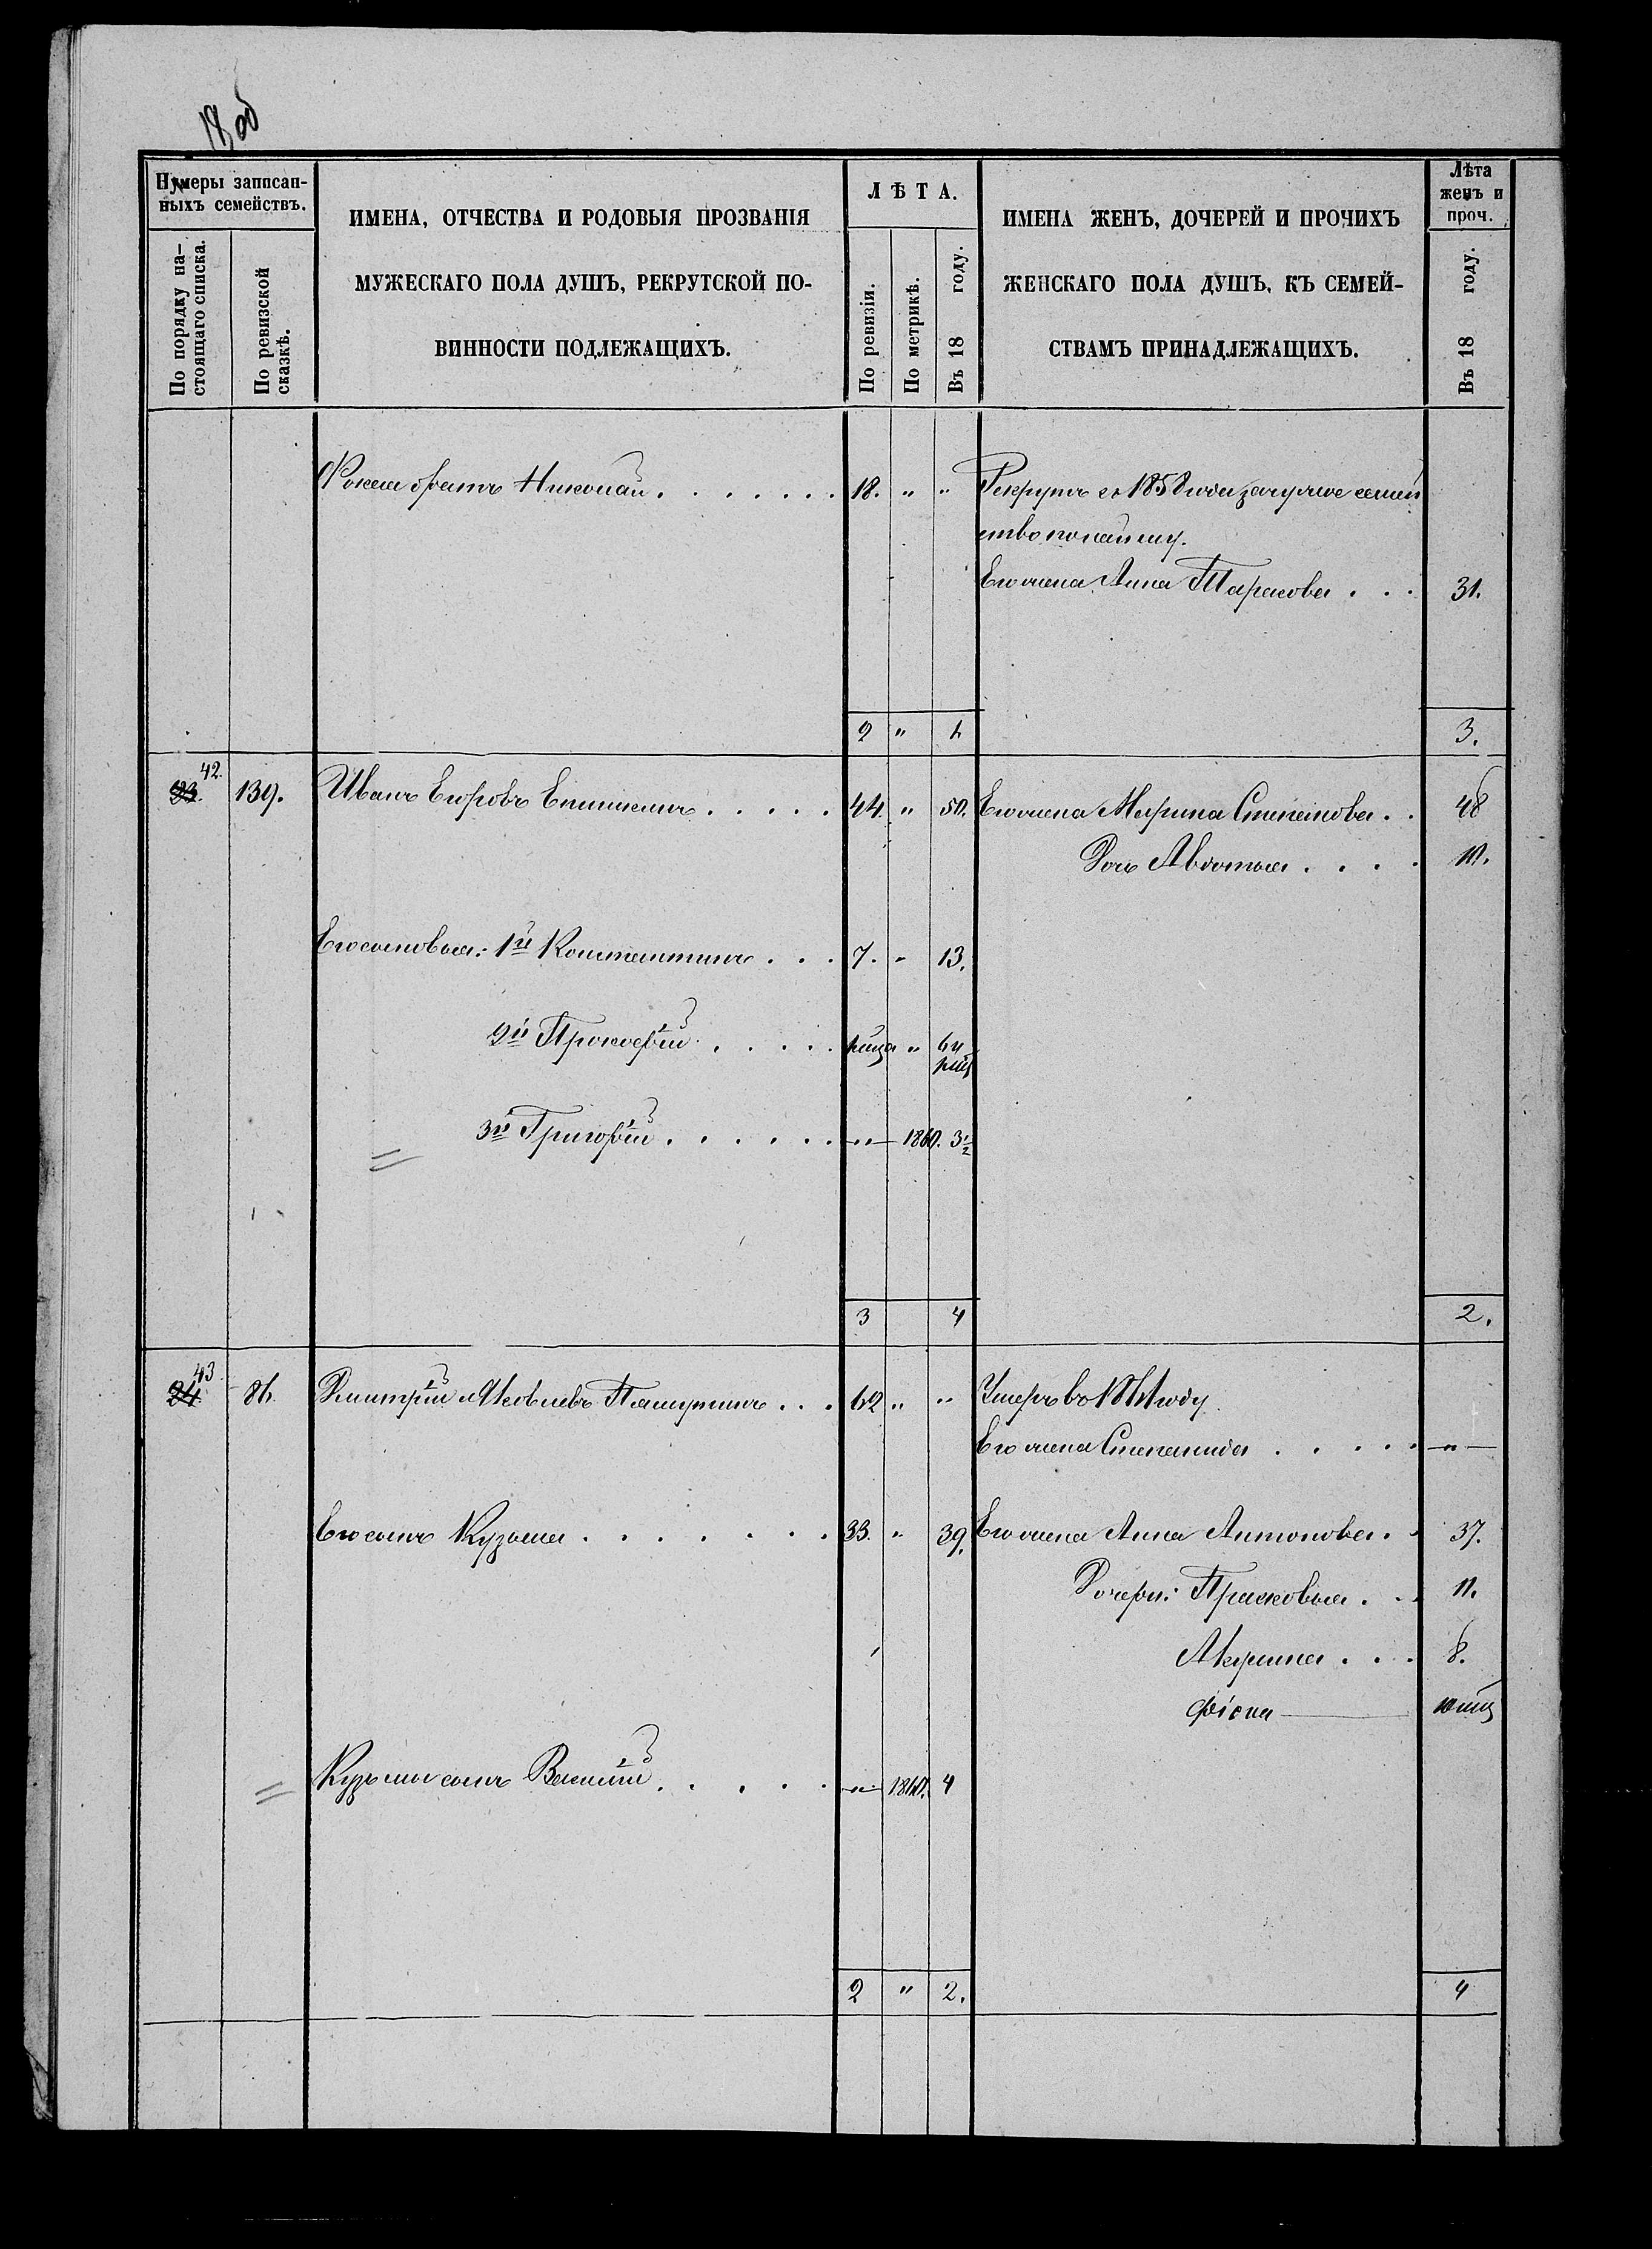 18об
Нумеры записан-
ныхъ семействъ.
По порядку на-
стоящаго списка.
По ревизской
сказкѣ.
ИМЕНА, ОТЧЕСТВА И РОДОВЫЯ ПРОЗВАНІЯ
МУЖЕСКАГО ПОЛА ДУШЪ, РЕКРУТСКОЙ ПО-
ВИННОСТИ ПОДЛЕЖАЩИХЪ.
ЛѢТА.
По ревизіи.
По метрикѣ.
Въ 18 году.
ИМЕНА ЖЕНЪ, ДОЧЕРЕЙ И ПРОЧИХЪ
ЖЕНСКАГО ПОЛА ДУШЪ, КЪ СЕМЕЙ-
СТВАМЪ ПРИНАДЛЕЖАЩИХЪ.
Лѣта
женъ и
проч.
Въ 18 году.
братъ Николай . . . . . . . 18. " " Рекрутъ съ 1858 года семей
ство по найму.
Его жена Анна Тарасова . . . 31.
2 " 1 3.
42.
23. 139. Иванъ Егоровъ . . . . . 44. " 50. Его жена Марина Степанова . . 48
Дочь Авдотья . . . . 10.
Его сыновья: 1й Константинъ . . . 7. " 13.
2й Прокофій . . . . "
3й Григорій . . . . . . " 1860. 3½
3 4 2.
43
24. 86. Дмитрій Яковлевъ . . . 62 " " Умеръ въ 1861 году.
Его жена Степанида . . . . . "
Его сынъ Кузьма . . . . . . . 33. " 39. Его жена Анна Антонова . . 37.
Дочери: Прасковья . . . 11.
Акулина . . . 8.
Кузьмы сынъ Василій . . . . . " 1860. 4
2 " 2. 4